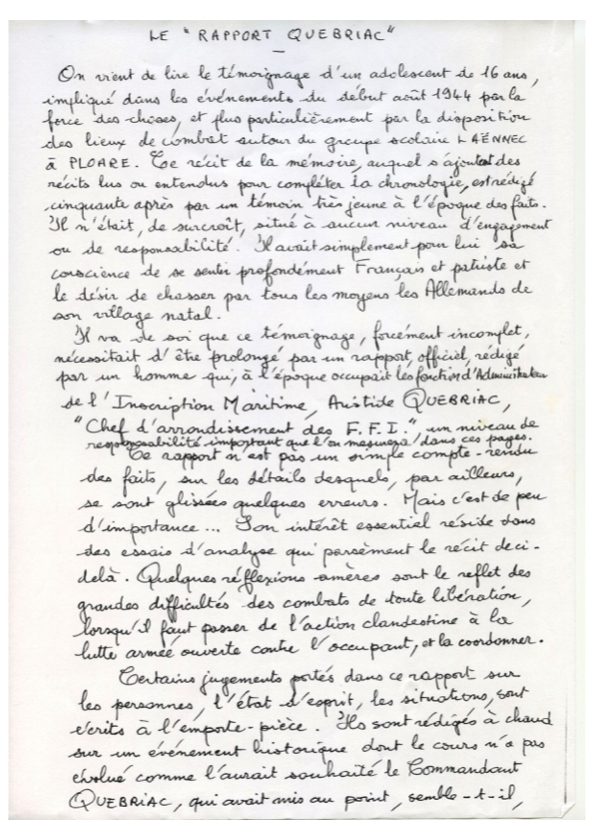 LE "RAPPORT QUEBRIAC"
On vient de lire le témoignage d'un adolescent de 16 ans,
impliqué dans les événements du début août 1944 par la
force des choses, et plus particulièrement par la disposition
des lieux de combat autour du groupe scolaire LAËNNEC
à PLOARE. Ce récit de la mémoire, auquel s'ajoutent des
récits lus ou entendus pour compléter la chronologie, est rédigé
cinquante après par un témoin très jeune à l'époque des faits.
Il n'était, de surcroît, situé à aucun niveau d'engagement
ou de responsabilité. Il avait simplement pour lui sa
conscience de se sentir profondément Français et patriote et
le désir de chasser par tous les moyens les Allemands de
son village natal.
Il va de soi que ce témoignage, forcément incomplet,
nécessitait d'être prolongé par un rapport, officiel, rédigé
par un homme qui, à l'époque occupait les fonctions d'Administrateur
de l'Inscription Maritime, Aristide QUEBRIAC,
"Chef d'arrondissement des F.F.I.", un niveau de
responsabilité important que l'on mesurera dans ces pages.
Ce rapport n'est pas un simple compte-rendu
des faits, sur les détails desquels, par ailleurs,
se sont glissées quelques erreurs. Mais c'est de peu
d'importance... Son intérêt essentiel réside dans
des essais d'analyse qui parsèment le récit deci-
delà. Quelques réfléxions amères sont le reflet des
grandes difficultés des combats de toute libération,
lorsqu'il faut passer de l'action clandestine à la
lutte armée ouverte contre l'occupant, et la coordonner.
Certains jugements portés dans ce rapport sur
les personnes, l'état d'esprit, les situations, sont
écrits à l'emporte-pièce. Ils sont rédigés à chaud
sur un événement historique dont le cours n'a pas
évolué comme l'aurait souhaité le Commandant
QUEBRIAC, qui avait mis au point, semble-t-il,